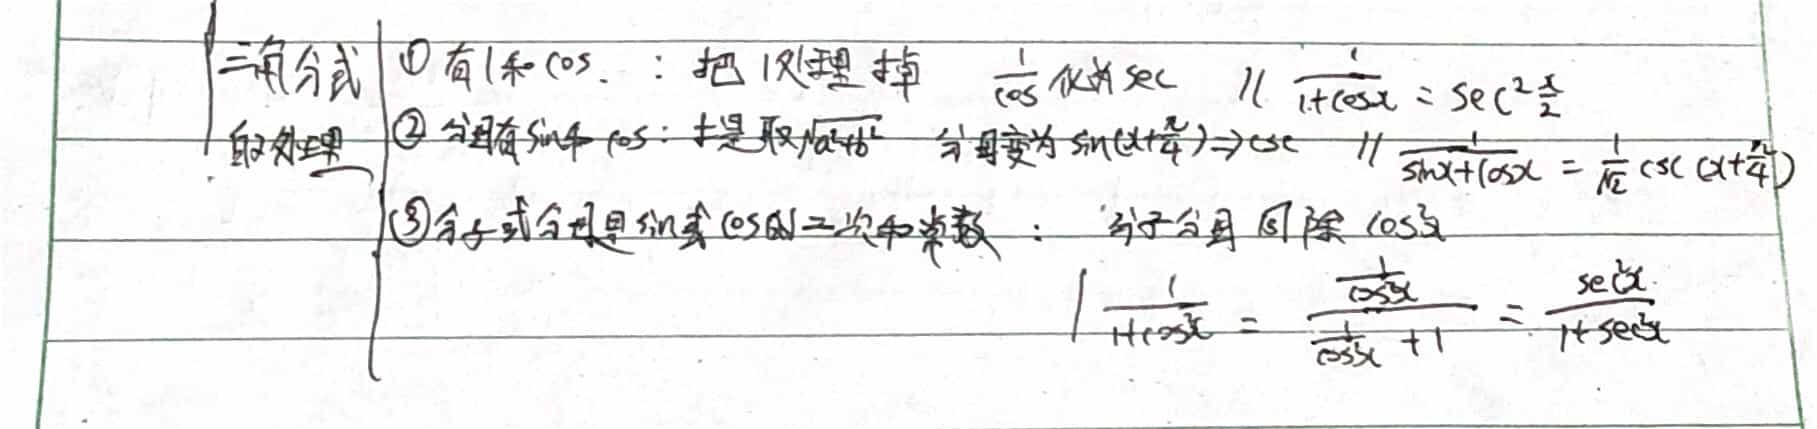 三角分式的处理
① 有1和cos. : 把1处理掉 1/cos 化为sec // 1/(1+cosx) = sec² x/2
② 分母有sin和cos: 提取√(a²+b²) 分母变为sin(x+π/4)⇒csc // 1/(sinx+cosx) = 1/√2 csc(x+π/4)
③ 分子或分母是sin或cos的二次和常数 : 分子分母同除cos²x
| 1/(1+cos²x) = (1/cos²x)/(1/cos²x + 1) = sec²x/(1+sec²x)